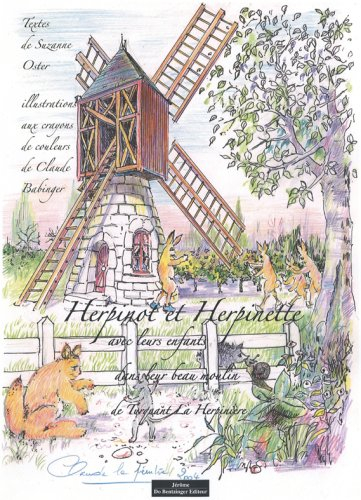 Textes
de Suzanne
Oster
illustrations
aux crayons
de couleurs
de Claude
Babinger
Herpinot et Herpinette
avec leurs enfants
dans leur beau moulin
de Turquant La Herpinière
2004
Jérôme
Do Bentzinger Editeur